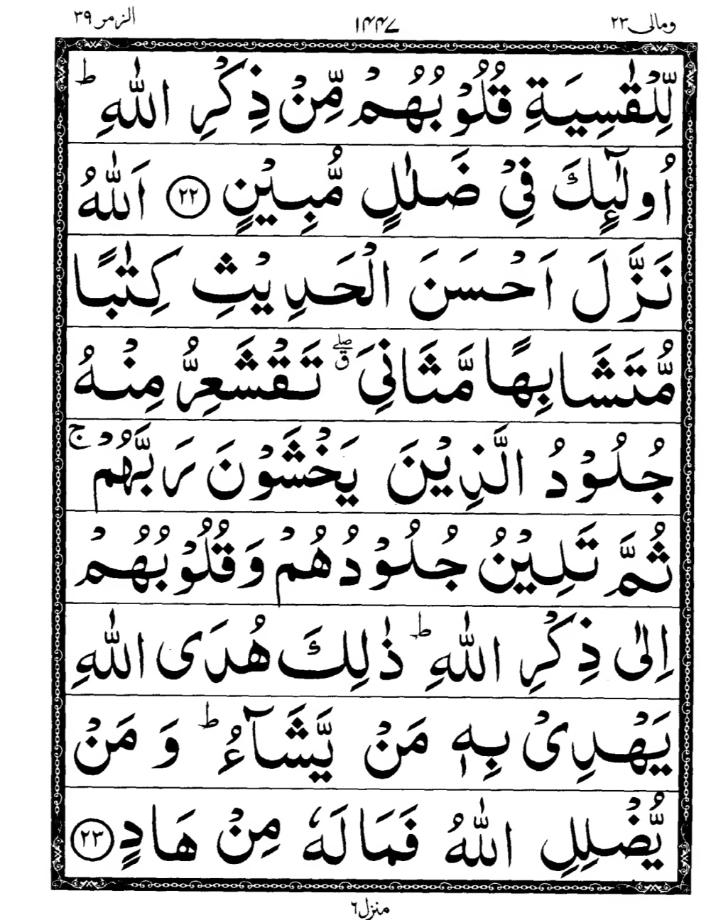 ومالی۲۳ ۱۴۴۷ الزمر ۳۹
لِّلْقٰسِيَةِ قُلُوْبُهُمْ مِّنْ ذِكْرِ اللّٰهِ ؕ
اُولٰٓئِكَ فِيْ ضَلٰلٍ مُّبِيْنٍ ﴿۲۲﴾ اَللّٰهُ
نَزَّلَ اَحْسَنَ الْحَدِيْثِ كِتٰبًا
مُّتَشَابِهًا مَّثَانِيَ ۖق تَقْشَعِرُّ مِنْهُ
جُلُوْدُ الَّذِيْنَ يَخْشَوْنَ رَبَّهُمْ ۚ
ثُمَّ تَلِيْنُ جُلُوْدُهُمْ وَقُلُوْبُهُمْ
اِلٰى ذِكْرِ اللّٰهِ ؕ ذٰلِكَ هُدَى اللّٰهِ
يَهْدِيْ بِهٖ مَنْ يَّشَآءُ ؕ وَ مَنْ
يُّضْلِلِ اللّٰهُ فَمَا لَهٗ مِنْ هَادٍ ﴿۲۳﴾
منزل۶